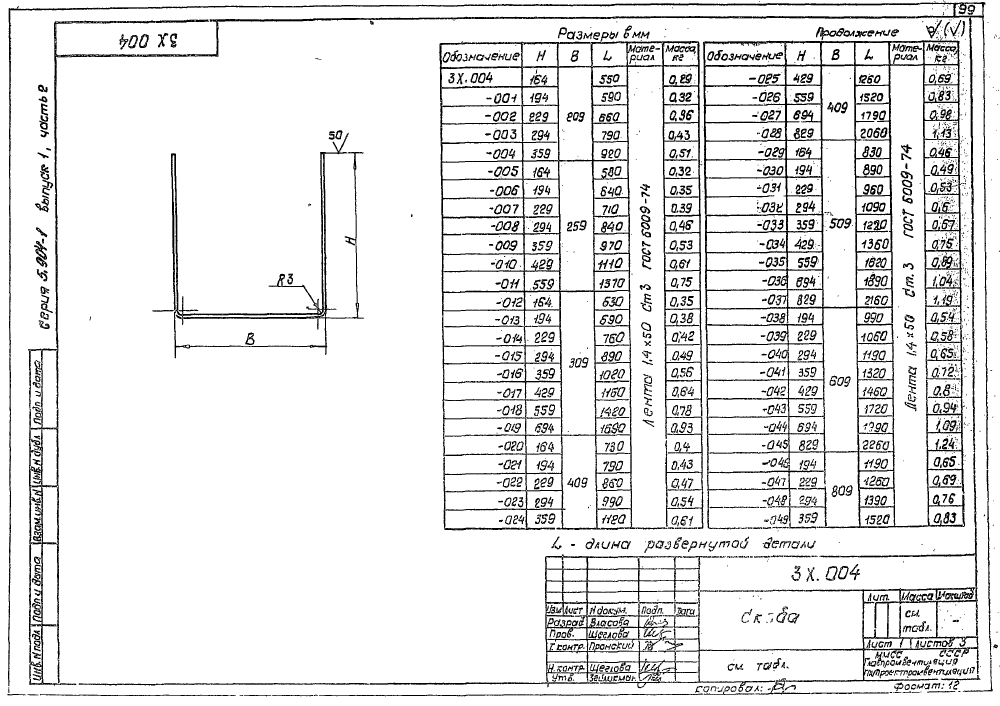 99
3Х 004
серия 5.904-1 выпуск 1, часть 2
50
H
R3
B
Размеры в мм
Обозначение H B L Материал Масса, кг
3Х.004 164 209 550 Лента 1,4×50 Ст3 ГОСТ 6009-74 0,29
-001 194 590 0,32
-002 229 660 0,36
-003 294 790 0,43
-004 359 920 0,51
-005 164 259 580 0,32
-006 194 640 0,35
-007 229 710 0,39
-008 294 840 0,46
-009 359 970 0,53
-010 429 1110 0,61
-011 559 1370 0,75
-012 164 309 630 0,35
-013 194 690 0,38
-014 229 760 0,42
-015 294 890 0,49
-016 359 1020 0,56
-017 429 1160 0,64
-018 559 1420 0,78
-019 694 1690 0,93
-020 164 409 730 0,4
-021 194 790 0,43
-022 229 860 0,47
-023 294 990 0,54
-024 359 1120 0,61
Продолжение
Обозначение H B L Материал Масса, кг
-025 429 409 1260 Лента 1,4×50 Ст.3 ГОСТ 6009-74 0,69
-026 559 1520 0,83
-027 694 1790 0,98
-028 829 2060 1,13
-029 164 509 830 0,46
-030 194 890 0,49
-031 229 960 0,53
-032 294 1090 0,6
-033 359 1220 0,67
-034 429 1360 0,75
-035 559 1620 0,89
-036 694 1890 1,04
-037 829 2160 1,19
-038 194 609 990 0,54
-039 229 1060 0,58
-040 294 1190 0,65
-041 359 1320 0,72
-042 429 1460 0,8
-043 559 1720 0,94
-044 694 1,09
-045 829 2260 1,24
-046 194 809 1190 0,65
-047 229 1260 0,69
-048 294 1390 0,76
-049 359 1520 0,83
L - длина развернутой детали
3Х.004
Изм Лист N докум. Подп. Дата
Разраб Власова
Пров. Щеглова
Т.контр. Пронский
Н.контр. Щеглова
Утв.
Скоба
см. табл.
Лит. Масса Масштаб
см. табл. -
Лист 1 Листов 3
ММСС СССР
Главпромвентиляция
Гипроектпромвентиляция
Копировал:
Формат: 12
Инв.N подл. Подп и дата Взам.инв.N Инв.N дубл. Подп и дата